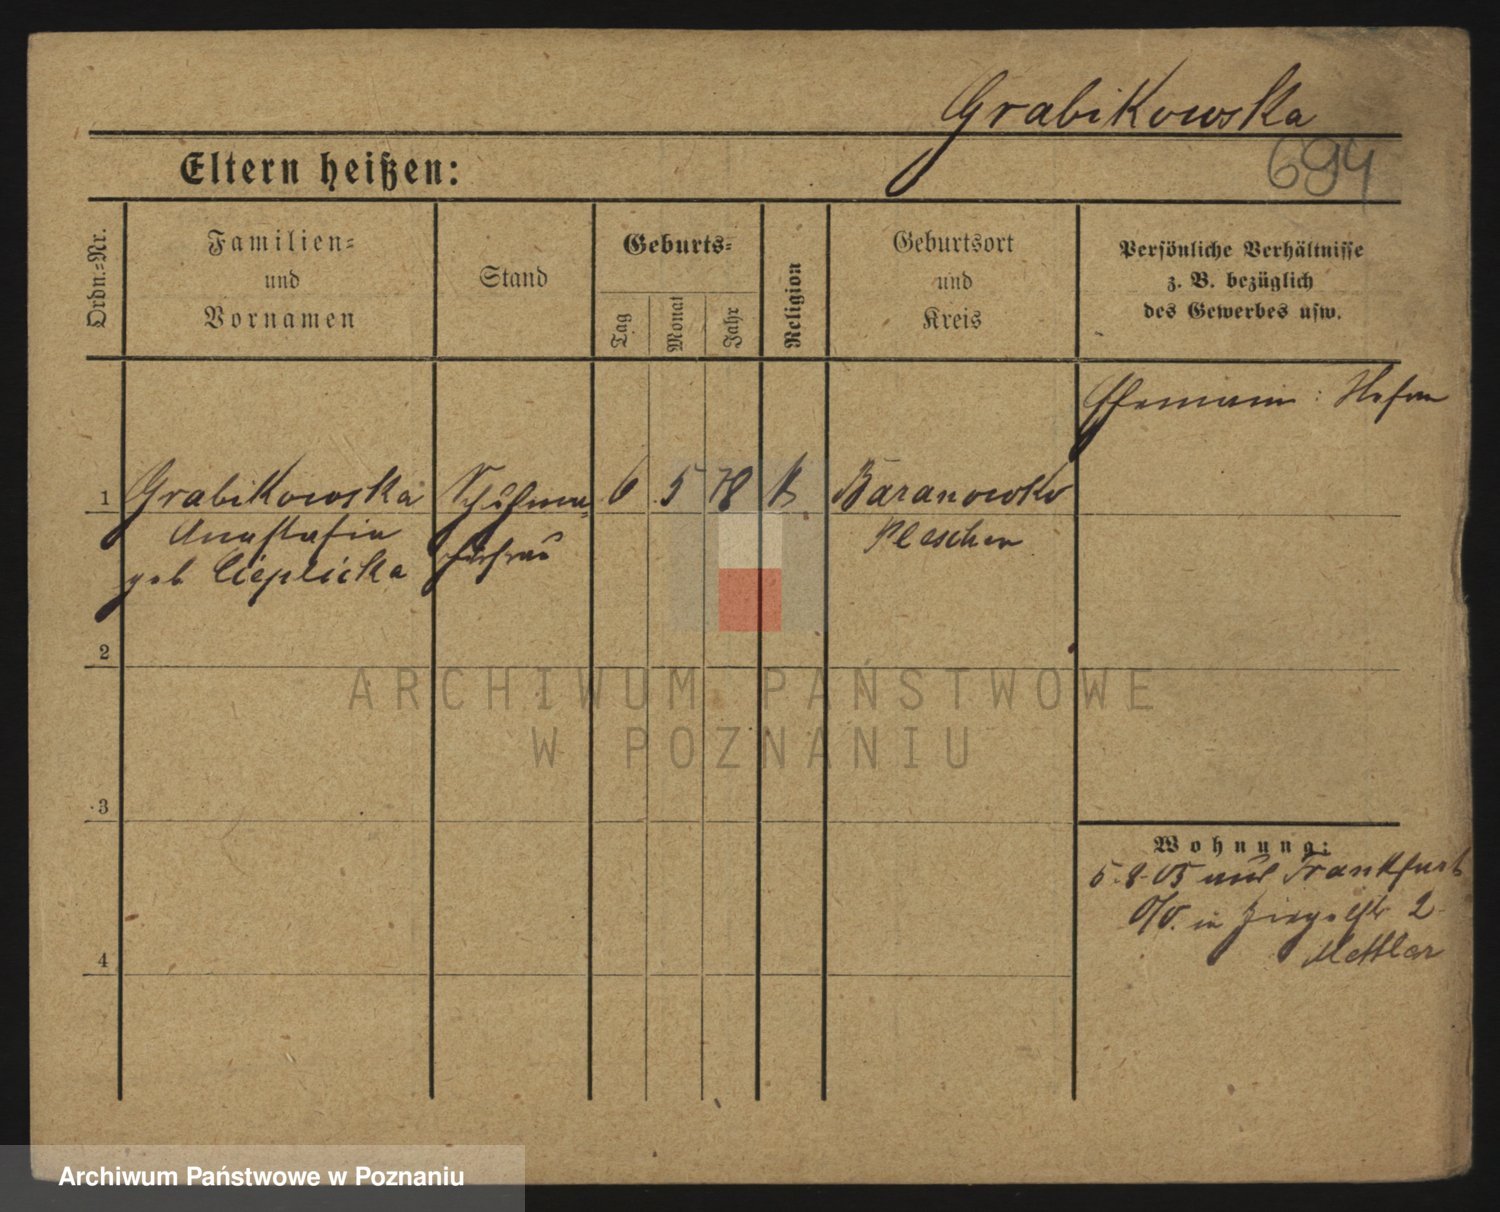 Grabikowska
694
Eltern heißen:
Ordn.=Nr.
Familien=
und
Vornamen
Stand
Geburts=
Tag
Monat
Jahr
Religion
Geburtsort
und
Kreis
Persönliche Verhältnisse
z. B. bezüglich
des Gewerbes usw.
Ehemann: Stefan
1 Grabikowska
Anastasia
geb Cieplicka
6 5 78 K
Baranowko
Pleschen
2
3
4
Wohnung:
5.8.05 aus Frankfurt
O/O. in Ziegelstr 2
Mettler
ARCHIWUM PAŃSTWOWE
W POZNANIU
Archiwum Państwowe w Poznaniu